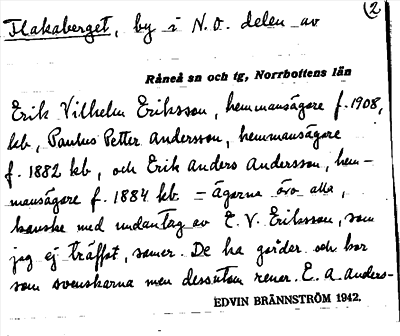 Flakaberget, by i N.O. delen av
2
Råneå sn och tg, Norrbottens län
Erik Vilhelm Eriksson, hemmansägare f. 1908,
kb, Paulus Petter Andersson, hemmansägare
f. 1882 kb, och Erik Anders Andersson, hem-
mansägare f. 1884 kb. – Ägarna äro alla,
kanske med undantag av E. V. Eriksson, som
jag ej träffat, samer. De ha gårdar och bor
som svenskarna men dessutom renar. E. A. Anders-
EDVIN BRÄNNSTRÖM 1942.